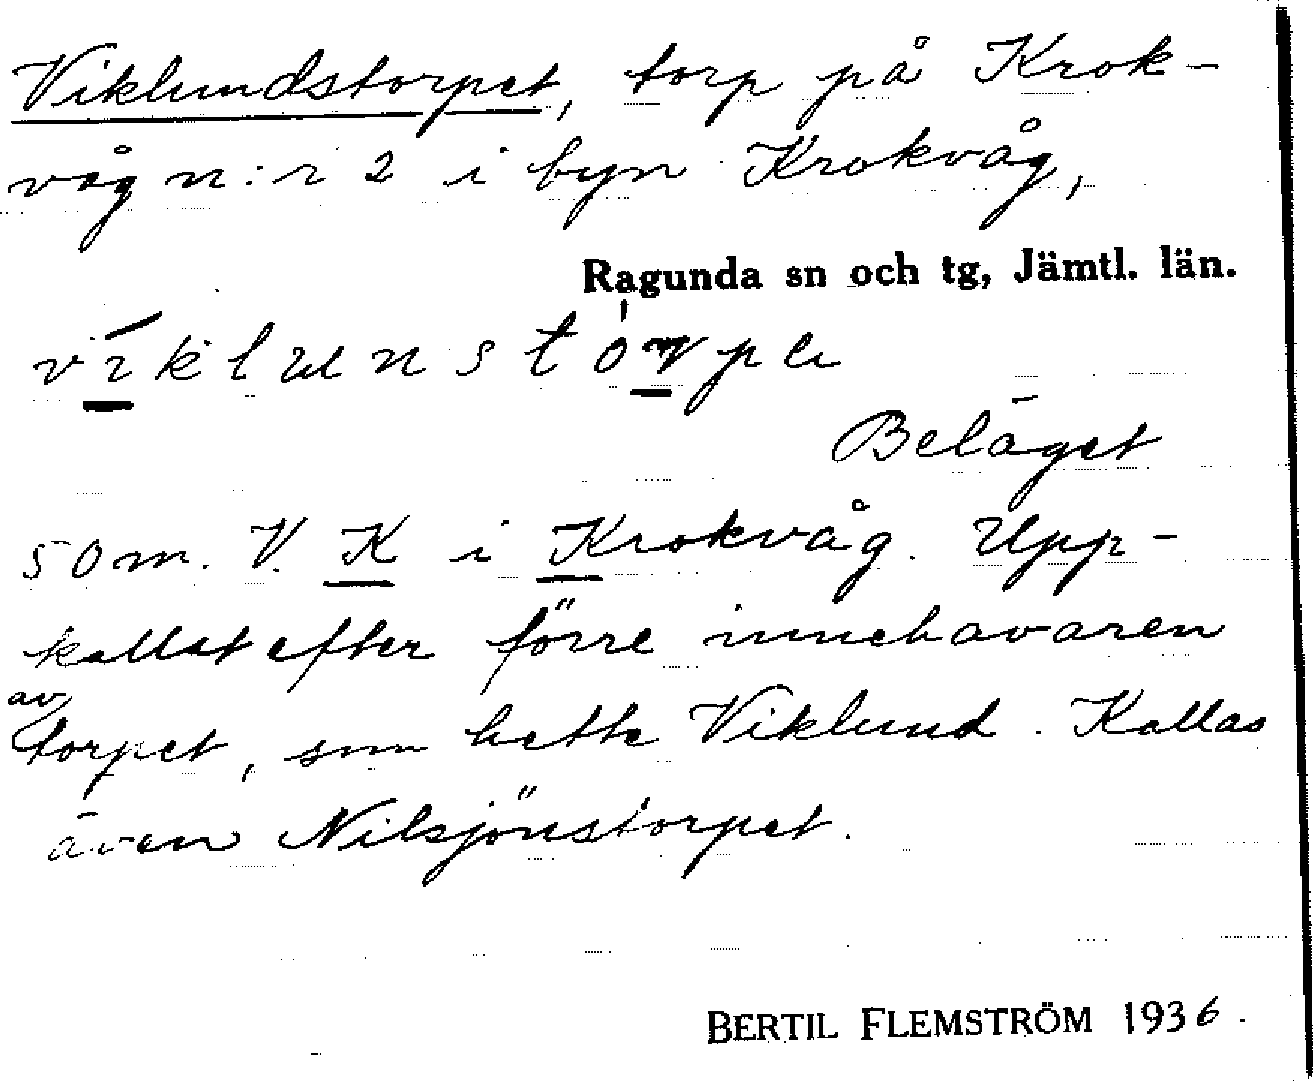 Viklundstorpet, torp på Krok-
våg n:r 2 i byn Krokvåg,
Ragunda sn och tg, Jämtl. län.
Beläget
50 m. V. K i Krokvåg. Upp-
kallat efter förre innehavaren
av
torpet, som hette Viklund. Kallas
även Nilsjönstorpet.
BERTIL FLEMSTRÖM 1936.